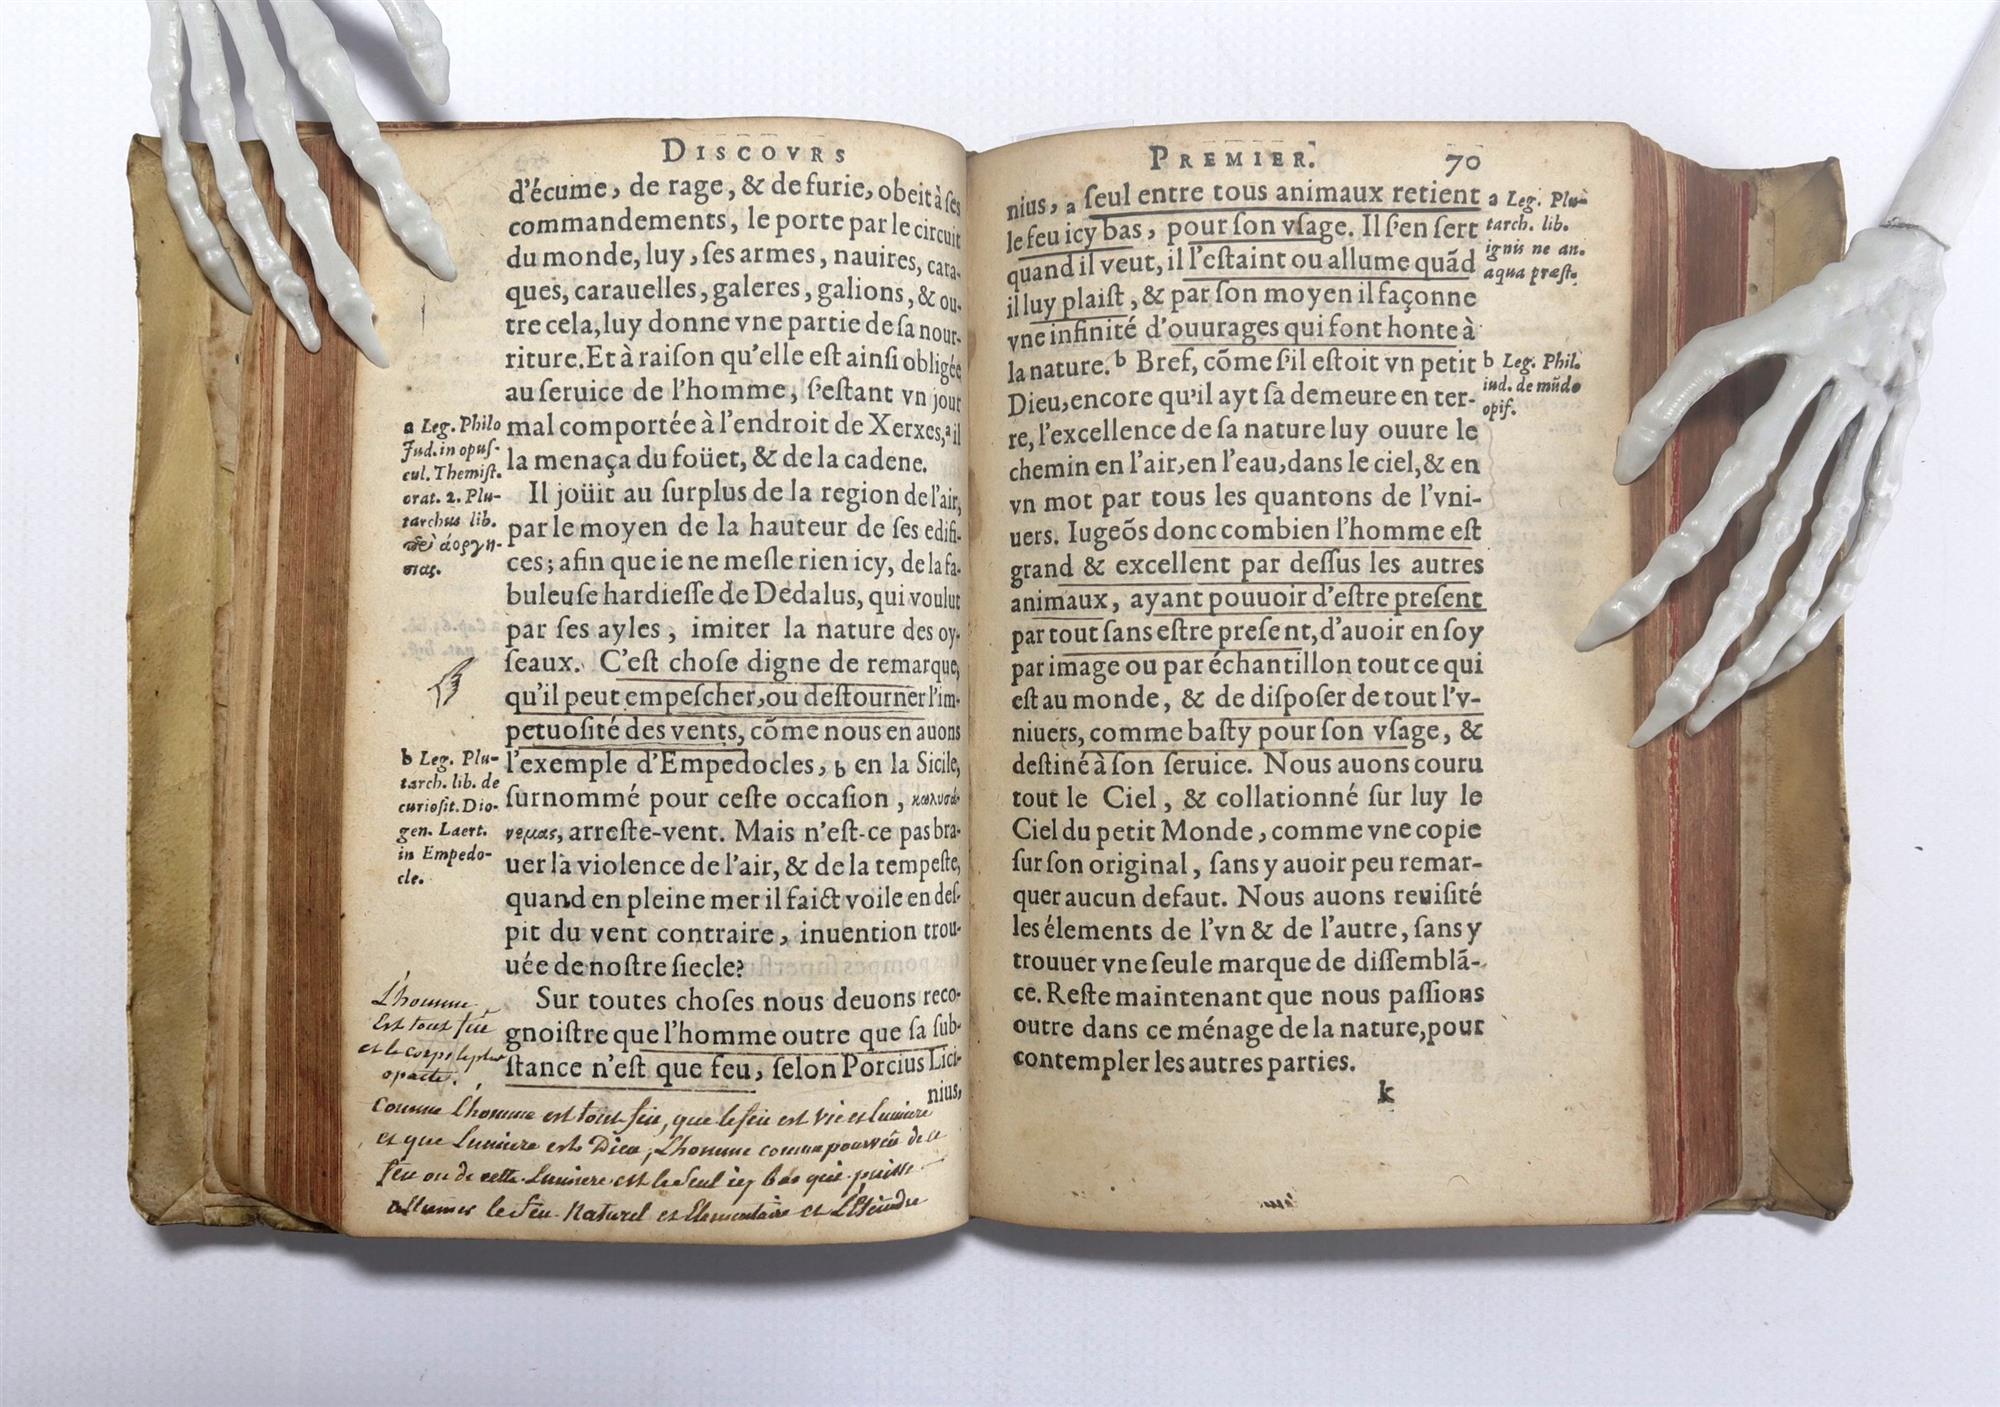 DISCOVRS
d'écume, de rage, & de furie, obeit à ses
commandements, le porte par le circuit
du monde, luy, ſes armes, nauires, cara-
ques, carauelles, galeres, galions, & ou-
tre cela, luy donne vne partie de ſa nour-
riture. Et à raiſon qu'elle eſt ainſi obligée
au ſeruice de l'homme, ſ'eſtant vn jour
mal comportée à l'endroit de Xerxes, a il
la menaça du foüet, & de la cadene.
Il joüit au ſurplus de la region de l'air,
par le moyen de la hauteur de ſes edifi-
ces; afin que ie ne meſle rien icy, de la fa-
buleuſe hardieſſe de Dedalus, qui voulut
par ſes ayles, imiter la nature des oy-
ſeaux. C'eſt choſe digne de remarque,
qu'il peut empeſcher, ou deſtourner l'im-
petuoſité des vents, cōme nous en auons
l'exemple d'Empedocles, b en la Sicile,
ſurnommé pour ceſte occaſion, κωλυσά-
νεμας, arreſte-vent. Mais n'eſt-ce pas bra-
uer la violence de l'air, & de la tempeſte,
quand en pleine mer il faict voile en deſ-
pit du vent contraire, inuention trou-
uée de noſtre ſiecle?
Sur toutes choſes nous deuons reco-
gnoiſtre que l'homme outre que ſa ſub-
ſtance n'eſt que feu, ſelon Porcius Lici-
nius,
a Leg. Philo
Jud. in opuſ-
cul. Themiſt.
orat. 2. Plu-
tarchus lib.
ἀοργη-
σιας.
b Leg. Plu-
tarch. lib. de
curioſit. Dio-
gen. Laert.
in Empedo-
cle.
L'homme
Est tout feu
et le corps le plus
opacte.
comme L'homme est tout feu, que le feu est vie et lumiere
et que Lumiere est Dieu, L'homme comme pourveu de ce
feu ou de cette Lumiere est le Seul icy bas qui puisse
allumer le feu Naturel et Elementaire et L'Eteindre
PREMIER. 70
nius, a ſeul entre tous animaux retient
le feu icy bas, pour ſon vſage. Il ſ'en ſert
quand il veut, il l'eſtaint ou allume quād
il luy plaiſt, & par ſon moyen il façonne
vne infinité d'ouurages qui font honte à
la nature. b Bref, cōme ſ'il eſtoit vn petit
Dieu, encore qu'il ayt ſa demeure en ter-
re, l'excellence de ſa nature luy ouure le
chemin en l'air, en l'eau, dans le ciel, & en
vn mot par tous les quantons de l'vni-
uers. Iugeōs donc combien l'homme eſt
grand & excellent par deſſus les autres
animaux, ayant pouuoir d'eſtre preſent
par tout ſans eſtre preſent, d'auoir en ſoy
par image ou par échantillon tout ce qui
eſt au monde, & de diſpoſer de tout l'v-
niuers, comme baſty pour ſon vſage, &
deſtiné à ſon ſeruice. Nous auons couru
tout le Ciel, & collationné ſur luy le
Ciel du petit Monde, comme vne copie
ſur ſon original, ſans y auoir peu remar-
quer aucun defaut. Nous auons reuiſité
les élements de l'vn & de l'autre, ſans y
trouuer vne ſeule marque de diſſemblā-
ce. Reſte maintenant que nous paſſions
outre dans ce ménage de la nature, pour
contempler les autres parties.
k
a Leg. Plu-
tarch. lib.
ignis ne an.
aqua præſt.
b Leg. Phil.
iud. de mūdo
opif.